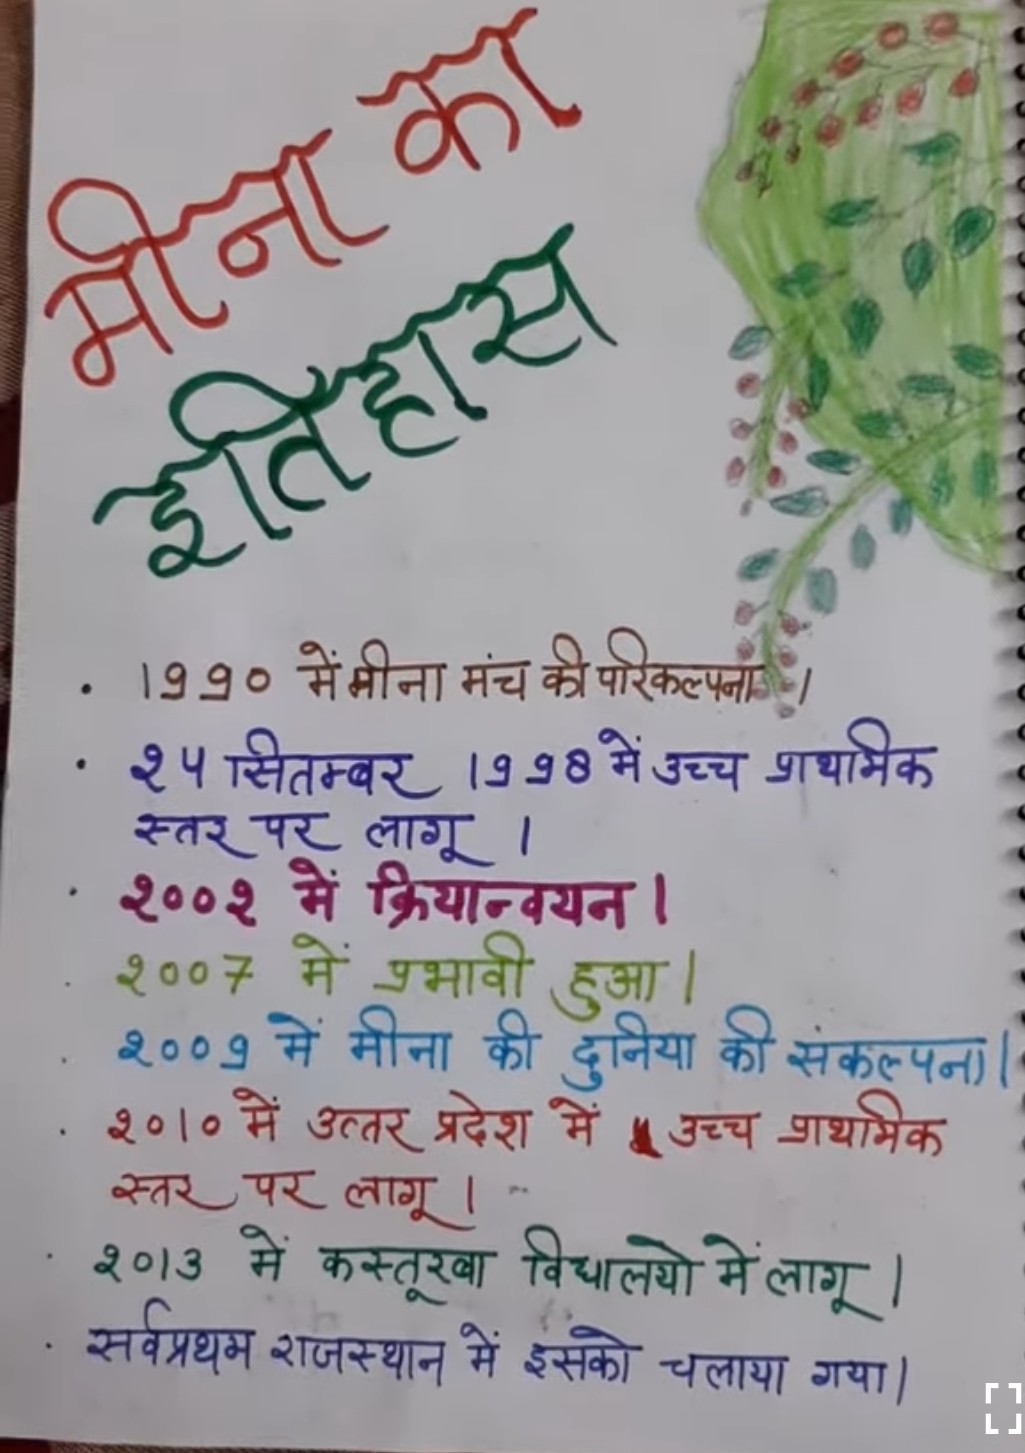 मीना का
इतिहास
1990 में मीना मंच की परिकल्पना ।
24 सितम्बर 1998 में उच्च प्राथमिक
स्तर पर लागू ।
2002 में क्रियान्वयन ।
2007 में प्रभावी हुआ ।
2009 में मीना की दुनिया की संकल्पना ।
2010 में उत्तर प्रदेश में उच्च प्राथमिक
स्तर पर लागू ।
2013 में कस्तूरबा विद्यालयो में लागू ।
सर्वप्रथम राजस्थान में इसको चलाया गया ।